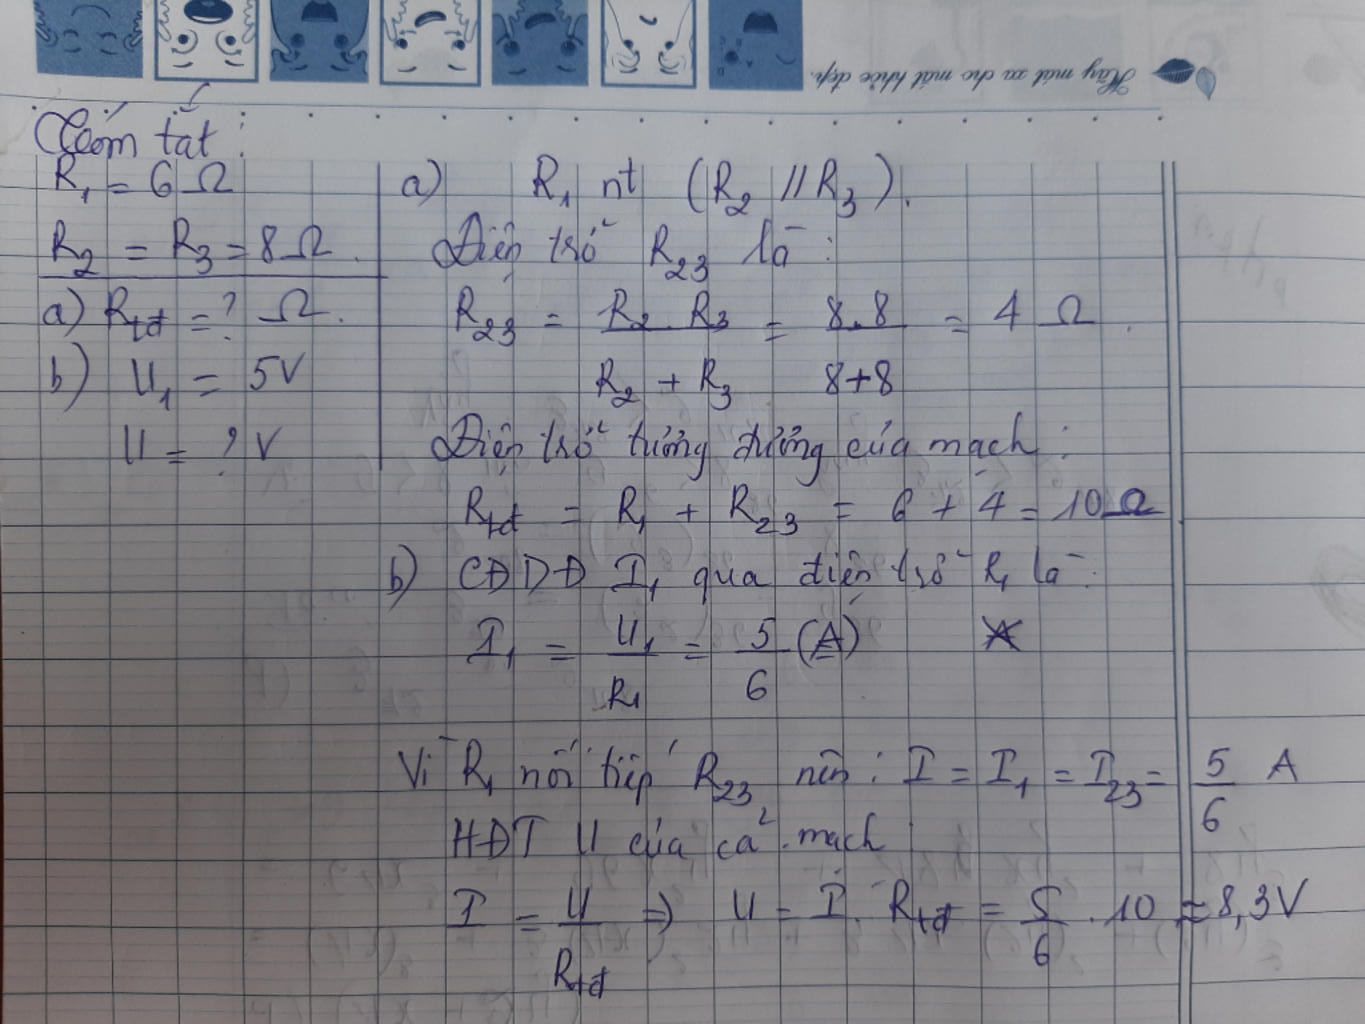 Hãy mát xa cho mắt khỏe đẹp.
Tóm tắt:
R₁ = 6 Ω
R₂ = R₃ = 8 Ω.
a) Rtđ = ? Ω.
b) U₁ = 5V
U = ? V
a) R₁ nt (R₂ // R₃).
Điện trở R₂₃ là:
R₂₃ = R₂ . R₃ / R₂ + R₃ = 8.8 / 8+8 = 4 Ω.
Điện trở tương đương của mạch:
Rtđ = R₁ + R₂₃ = 6 + 4 = 10 Ω
b) CĐDĐ I₁ qua điện trở R₁ là:
I₁ = U₁ / R₁ = 5 / 6 (A)
Vì R₁ nối tiếp R₂₃ nên: I = I₁ = I₂₃ = 5 / 6 A
HĐT U của cả mạch
I = U / Rtđ ⇒ U = I. Rtđ = 5 / 6 . 10 ≈ 8,3V